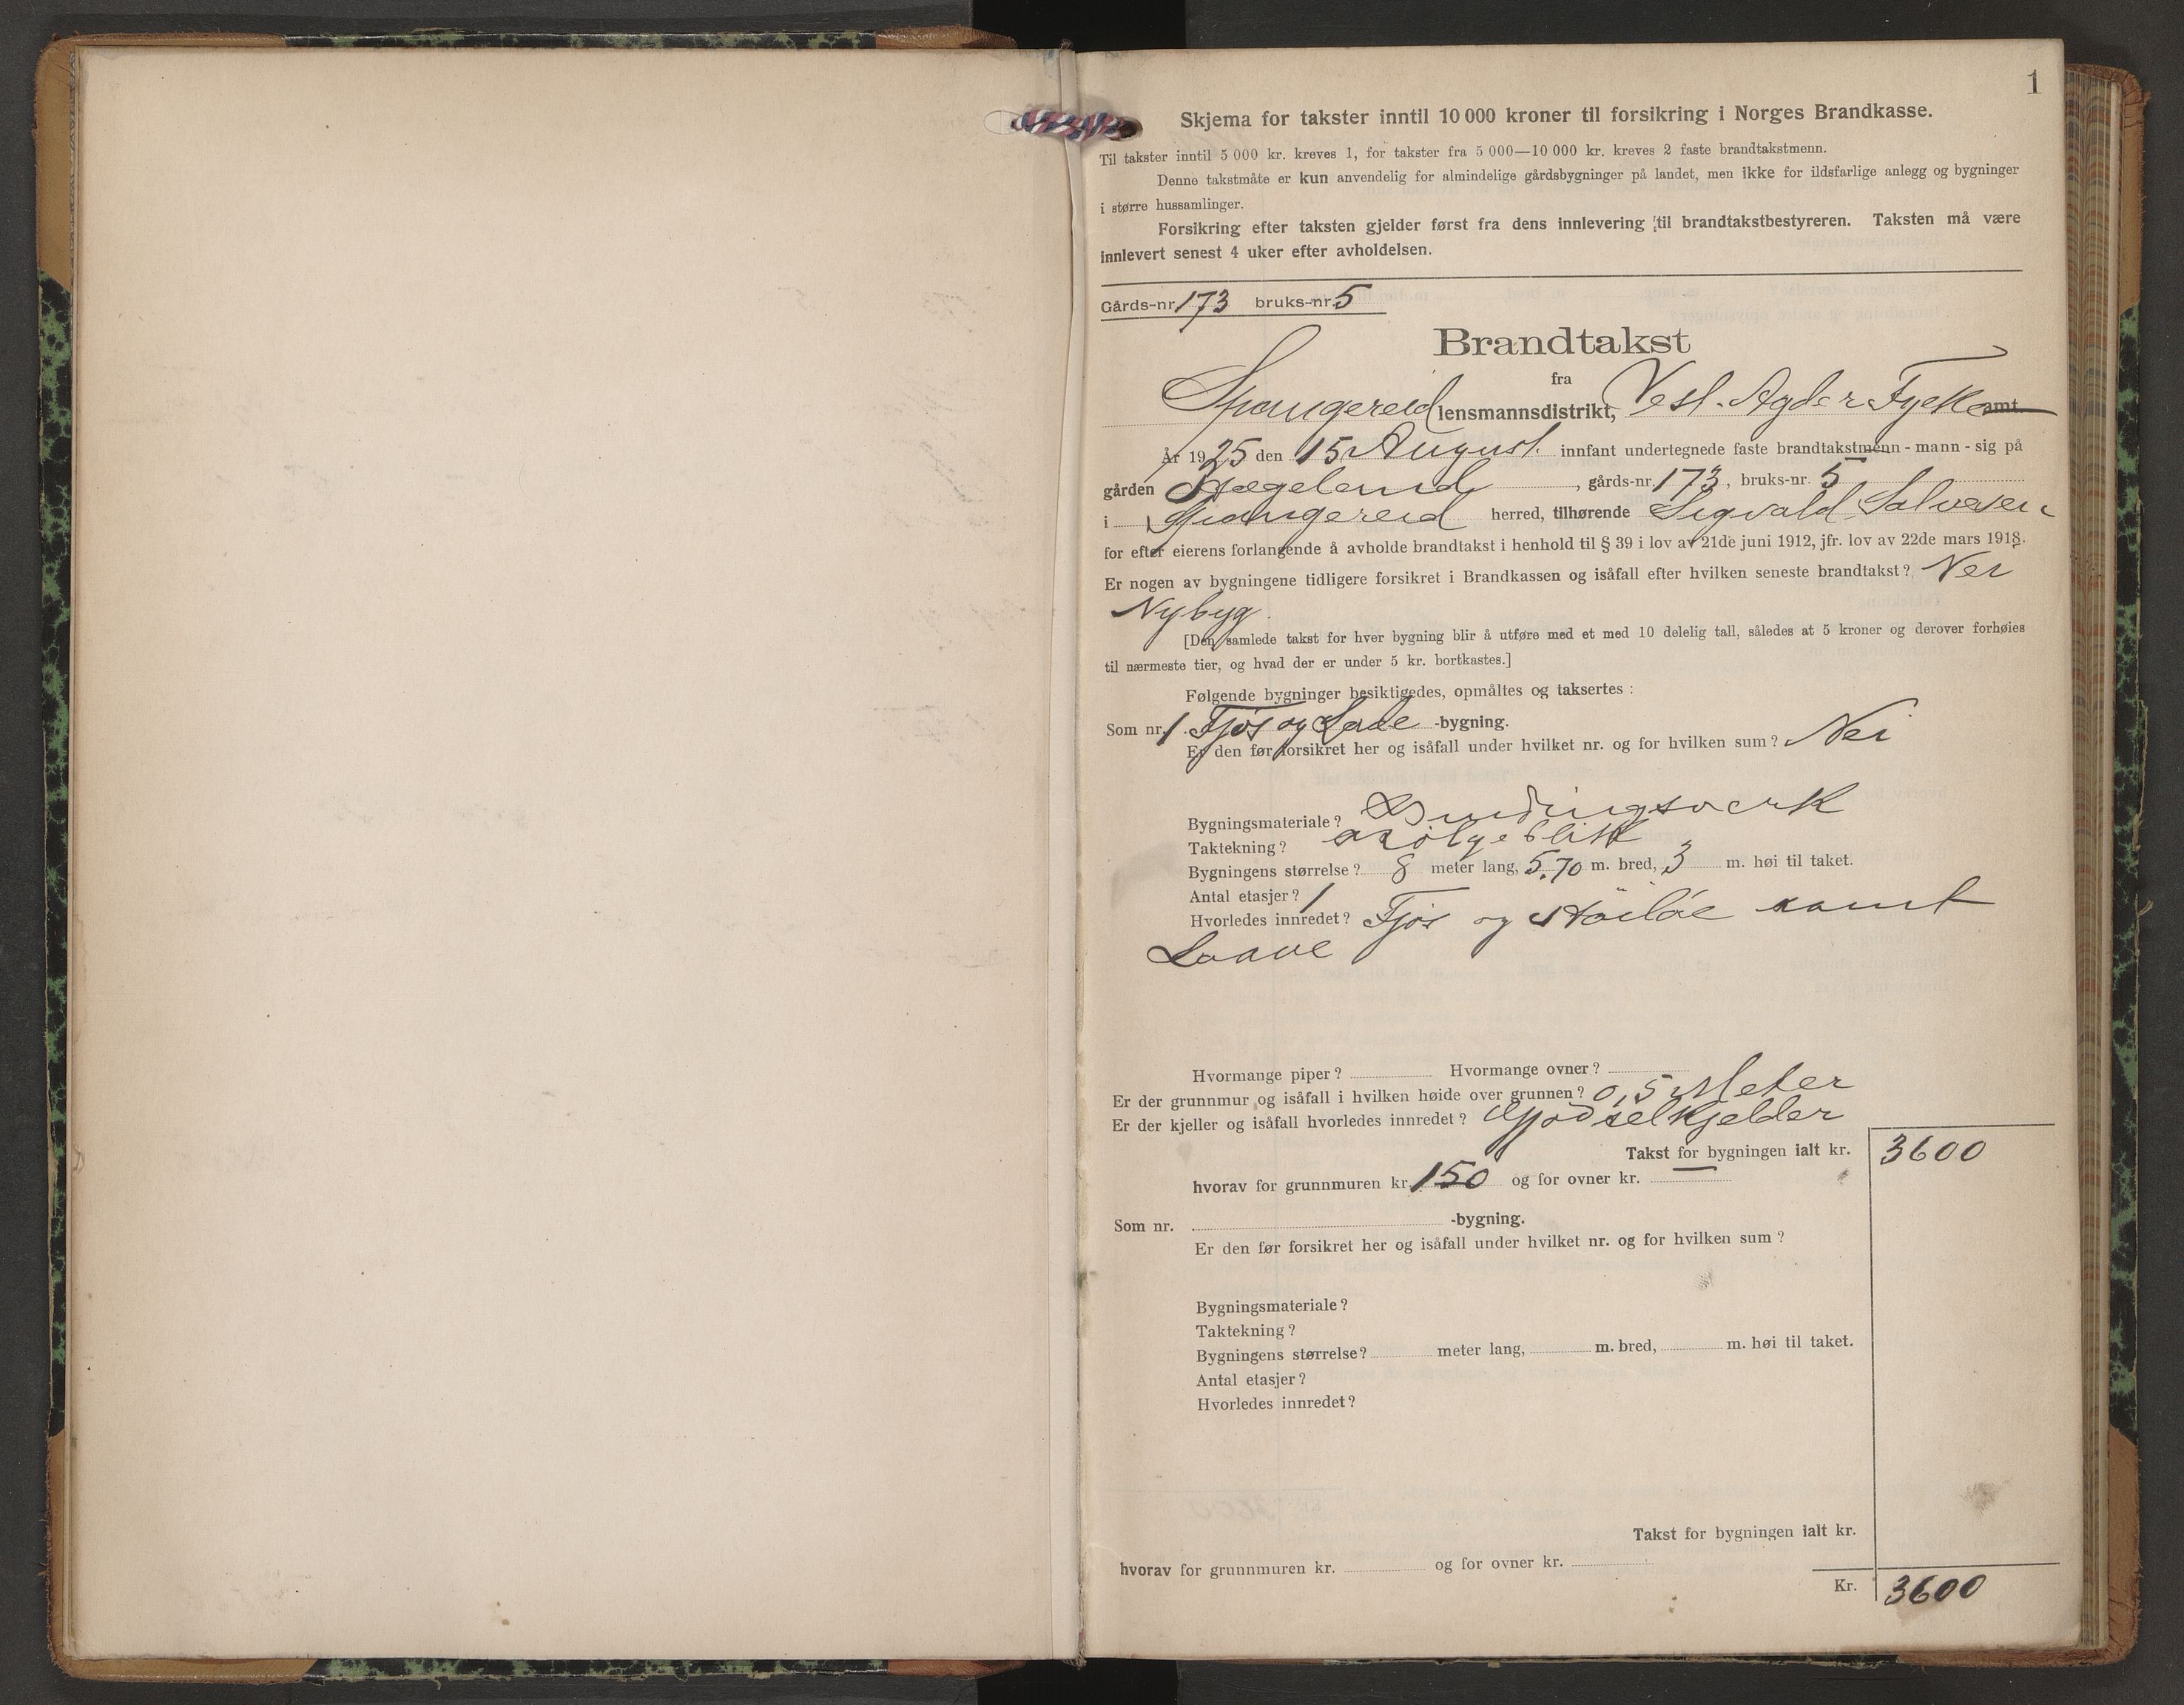 1
Skjema for takster inntil 10 000 kroner til forsikring i Norges Brandkasse.
Til takster inntil 5 000 kr. kreves 1, for takster fra 5 000—10 000 kr. kreves 2 faste brandtakstmenn.
Denne takstmåte er kun anvendelig for almindelige gårdsbygninger på landet, men ikke for ildsfarlige anlegg og bygninger
i større hussamlinger.
Forsikring efter taksten gjelder først fra dens innlevering til brandtakstbestyreren. Taksten må være
innlevert senest 4 uker efter avholdelsen.
Gårds-nr. 173 bruks-nr. 5
Brandtakst
fra
Spangereid lensmannsdistrikt, Vest. Agder Fylke amt
År 1925 den 15 August. innfant undertegnede faste brandtakstmenn - mann - sig på
gården , gårds-nr. 173, bruks-nr. 5
i Spangereid herred, tilhørende Sigvald Salvesen
for efter eierens forlangende å avholde brandtakst i henhold til § 39 i lov av 21de juni 1912, jfr. lov av 22de mars 1918.
Er nogen av bygningene tidligere forsikret i Brandkassen og isåfall efter hvilken seneste brandtakst? Nei
Nybyg.
[Den samlede takst for hver bygning blir å utføre med et med 10 delelig tall, således at 5 kroner og derover forhøies
til nærmeste tier, og hvad der er under 5 kr. bortkastes.]
Følgende bygninger besiktigedes, opmåltes og taksertes :
Som nr. 1. Fjøs og Lade -bygning.
Er den før forsikret her og isåfall under hvilket nr. og for hvilken sum? Nei
Bygningsmateriale? Bindingsverk
Taktekning? Bølgeblikk
Bygningens størrelse? 8 meter lang, 5,70 m. bred, 3 m. høi til taket.
Antal etasjer? 1
Hvorledes innredet? Fjøs og Høiløe samt
Laave
Hvormange piper? Hvormange ovner?
Er der grunnmur og isåfall i hvilken høide over grunnen? 0,5 Meter
Er der kjeller og isåfall hvorledes innredet? Gjødselkjelder
Takst for bygningen ialt kr. 3600
hvorav for grunnmuren kr. 150 og for ovner kr. —
Som nr. -bygning.
Er den før forsikret her og isåfall under hvilket nr. og for hvilken sum?
Bygningsmateriale?
Taktekning?
Bygningens størrelse? meter lang, m. bred, m. høi til taket.
Antal etasjer?
Hvorledes innredet?
Takst for bygningen ialt kr.
hvorav for grunnmuren kr. og for ovner kr.
Kr. 3600